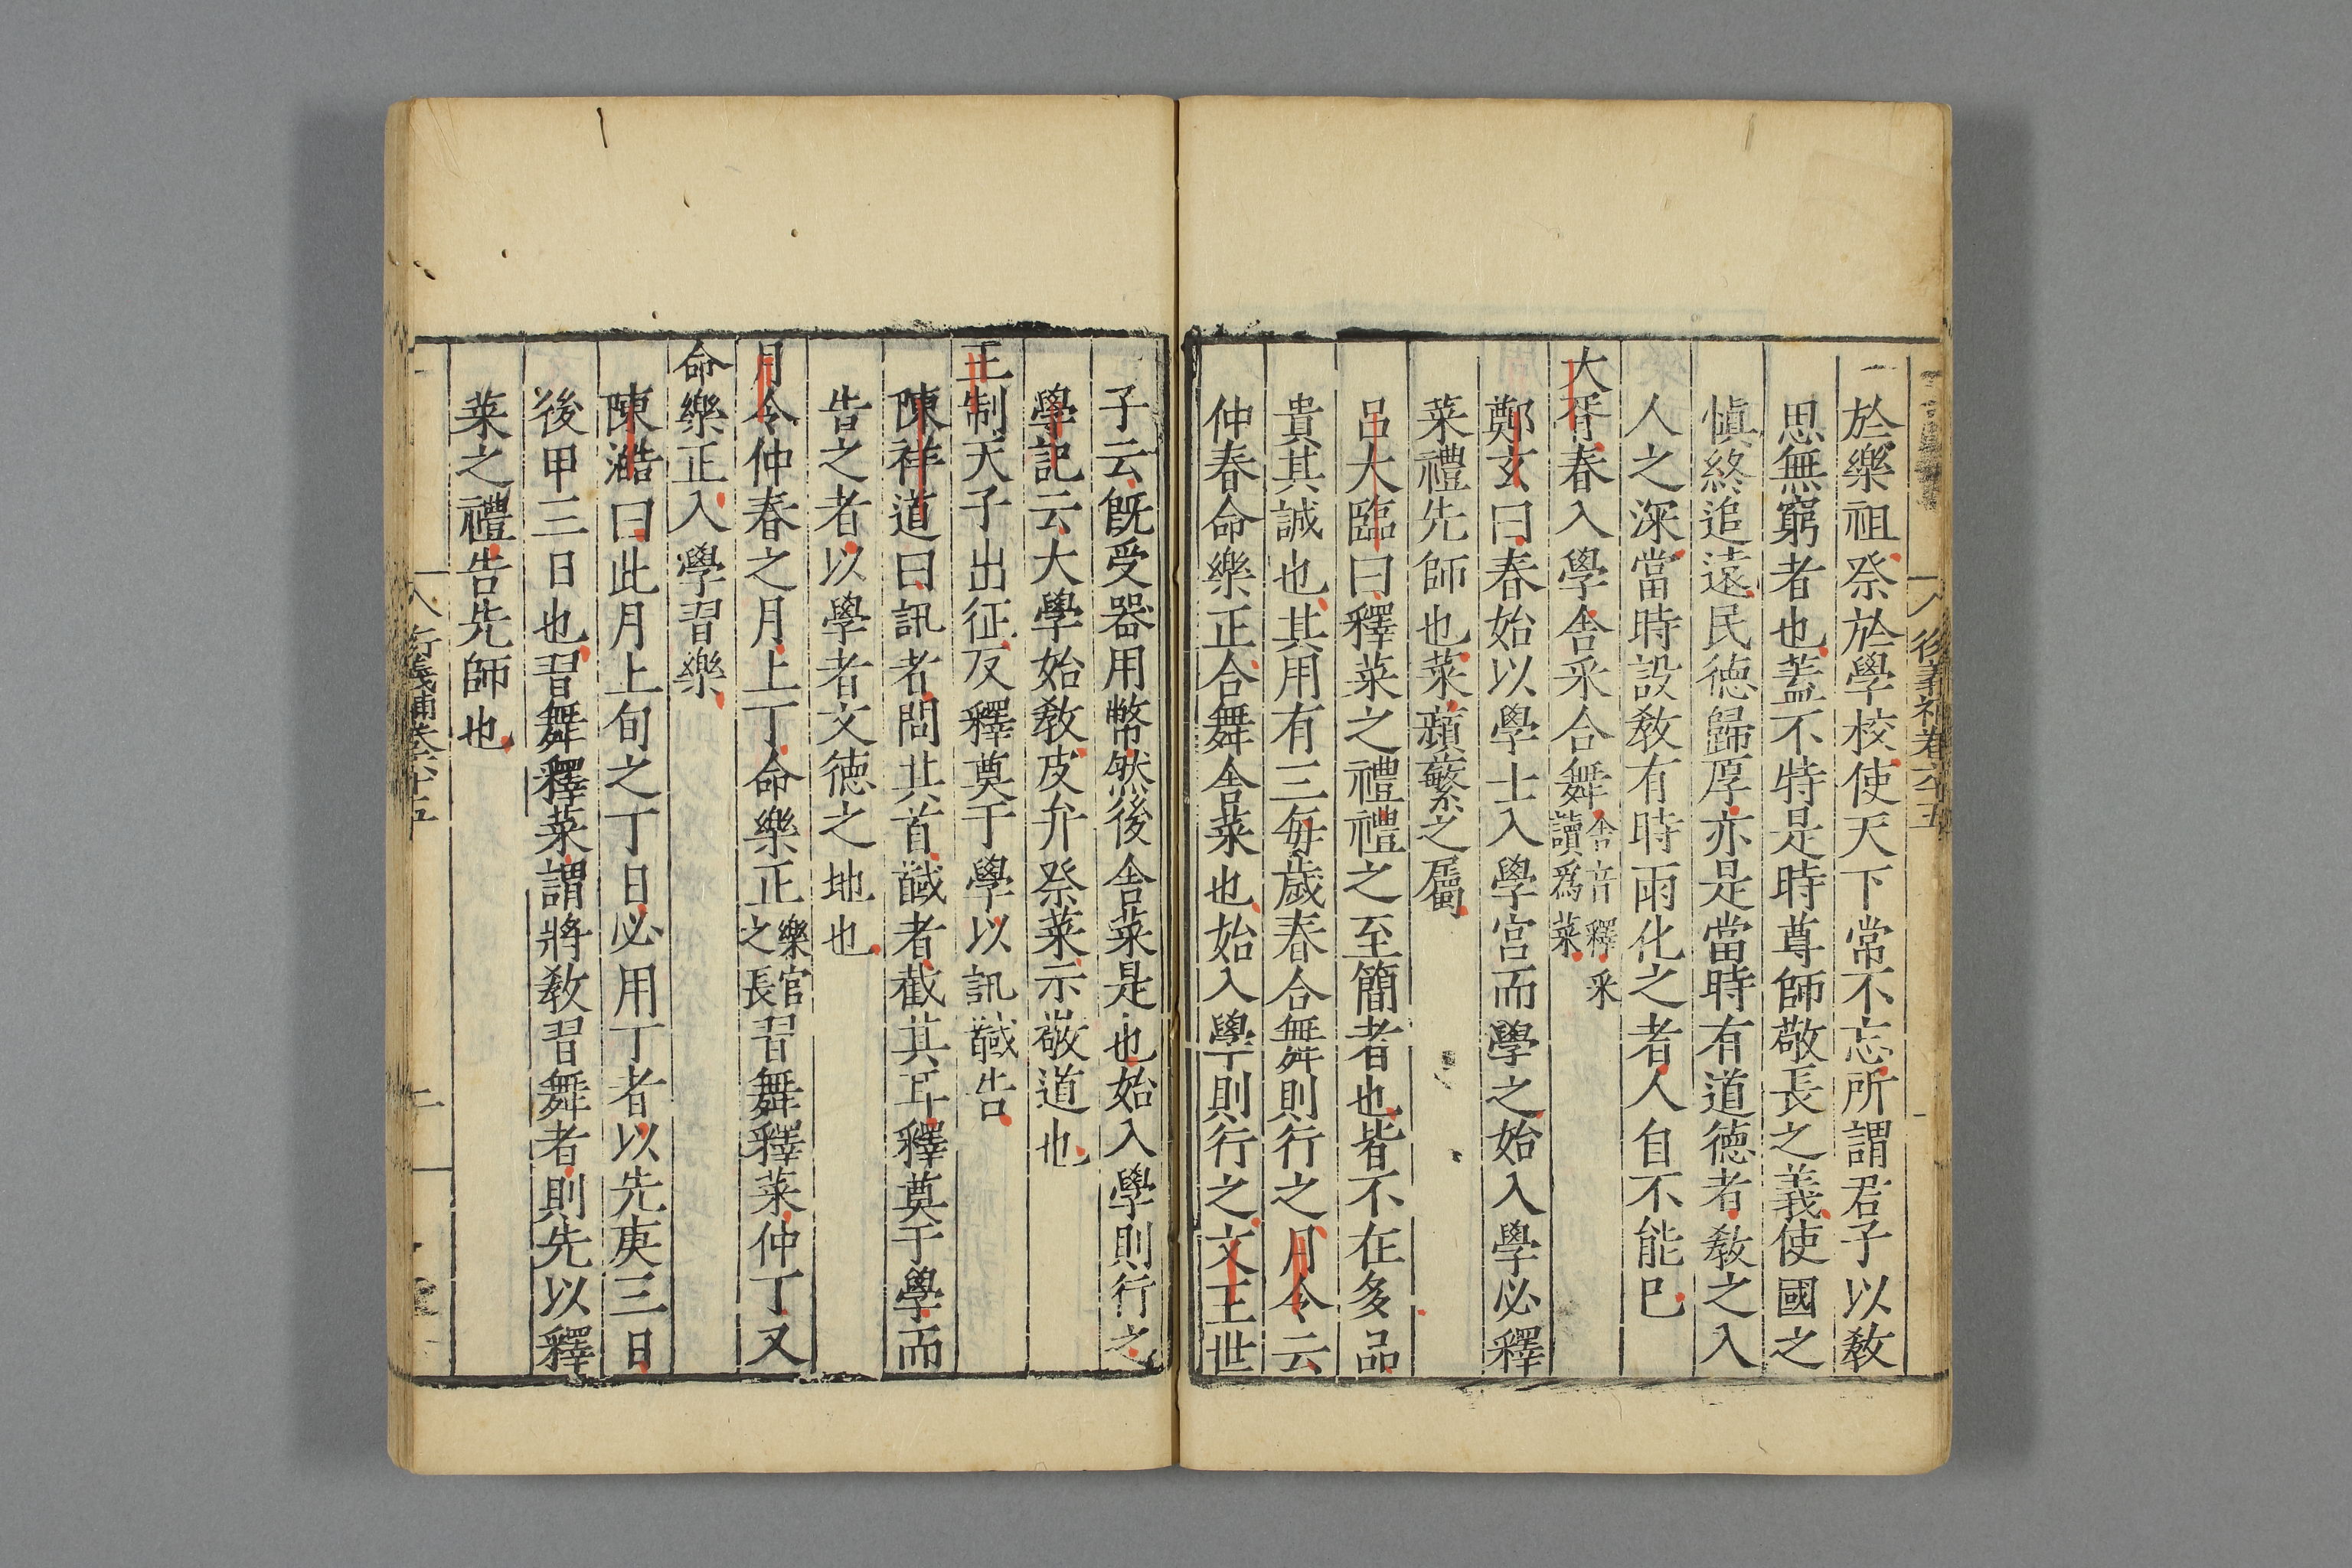 於樂祖祭於學校使天下常不忘所謂君子以敎
思無窮者也蓋不特是時尊師敬長之義使國之
愼終追遠民德歸厚亦是當時有道德者敎之入
人之深當時設敎有時雨化之者人自不能已
大胥春入學舍采合舞舍音釋采讀爲菜
鄭玄曰春始以學士入學宮而學之始入學必釋
菜禮先師也菜蘋蘩之屬
呂大臨曰釋菜之禮禮之至簡者也皆不在多品
貴其誠也其用有三每歲春合舞則行之月令云
仲春命樂正合舞舍菜也始入學則行之文王世
子云旣受器用幣然後舍菜是也始入學則行之
學記云大學始敎皮弁祭菜示敬道也
王制天子出征反釋奠于學以訊馘告
陳祥道曰訊者問其首馘者截其耳釋奠于學而
告之者以學者文德之地也
月令仲春之月上丁命樂正樂官之長習舞釋菜仲丁又
命樂正入學習樂
陳澔曰此月上旬之丁日必用丁者以先庚三日
後甲三日也習舞釋菜謂將敎習舞者則先以釋
菜之禮告先師也